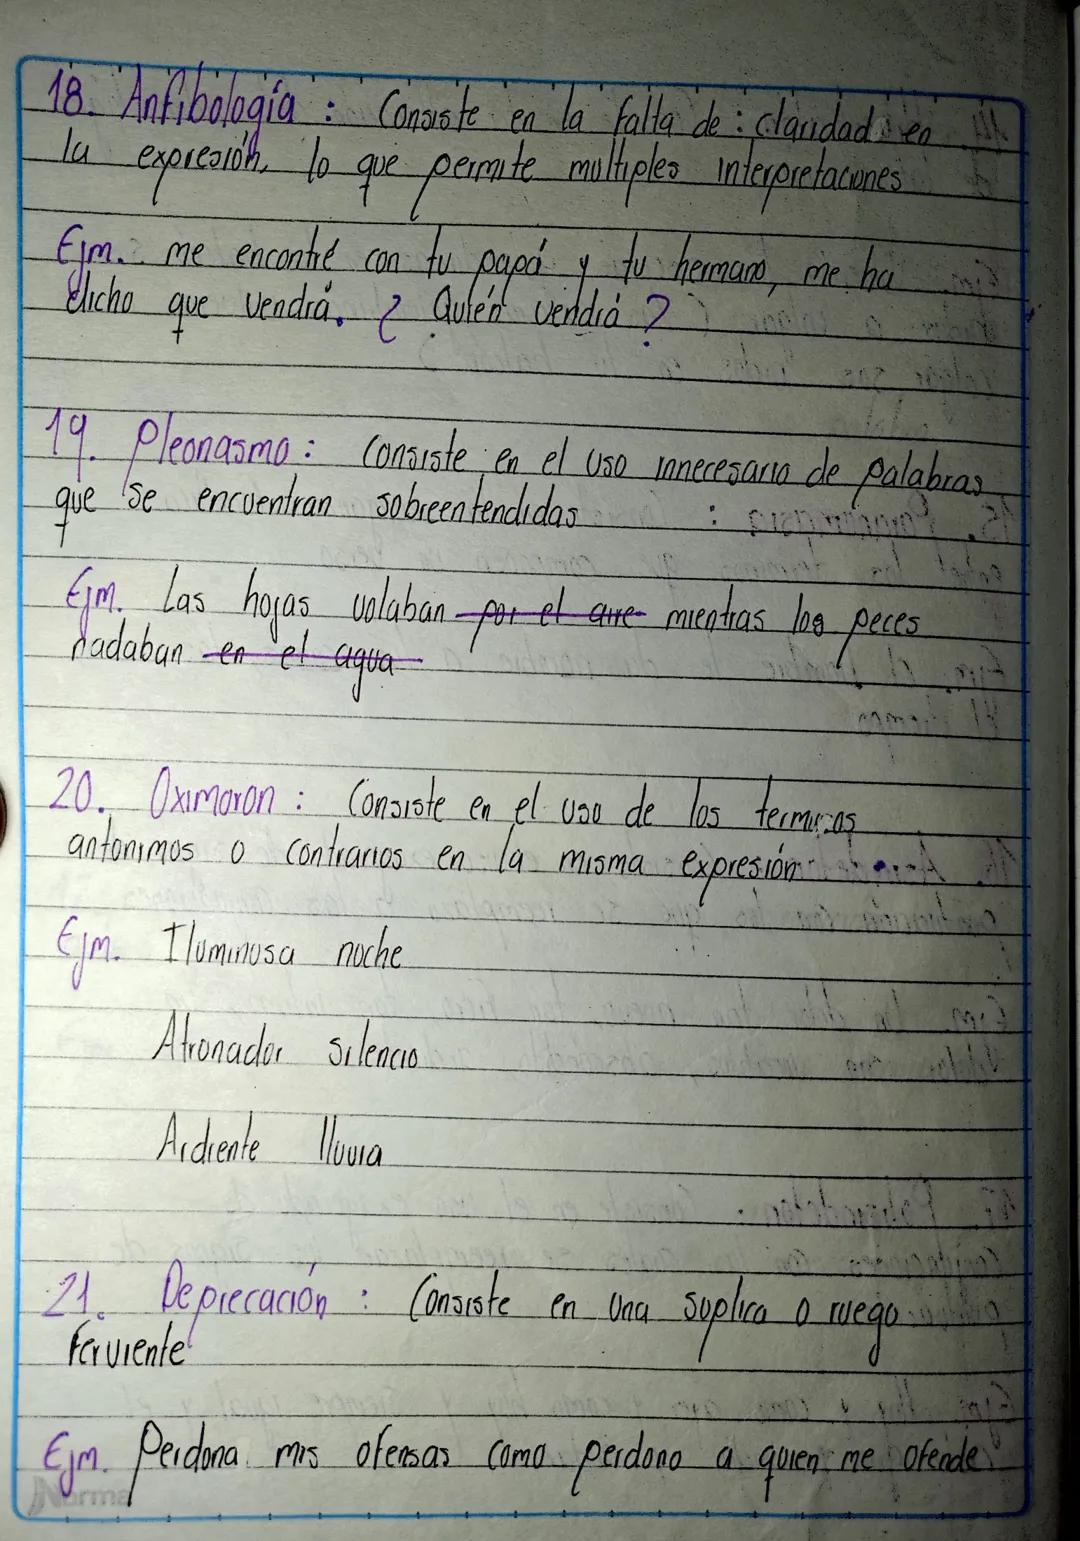 18. Anfibología : Consiste en la falta de : claridad en
la expresión, lo que permite multiples interpretaciones
Ejm. me encontré con tu papá y tu hermano, me ha
dicho que vendrá. ¿ Quién vendrá ?
19. Pleonasmo : Consiste en el uso innecesario de palabras
que se encuentran sobreentendidas
Ejm. Las hojas volaban por el aire mientras los peces
nadaban en el agua
20. Oximoron : Consiste en el uso de los terminos
antonimos o contrarios en la misma expresión .
Ejm. Iluminosa noche
Atronador silencio
Ardiente lluvia
21. Deprecación : Consiste en una suplica o ruego
ferviente
Ejm. Perdona mis ofensas como perdono a quien me ofende
Norma